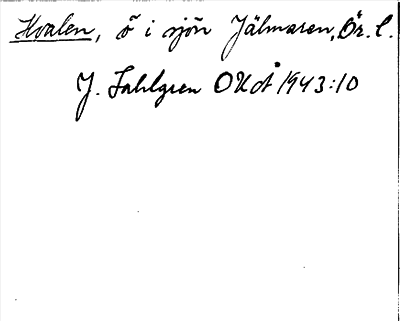 Hvalen, ö i sjön Jälmaren, Ör. l.
J. Sahlgren OUÅ 1943:10